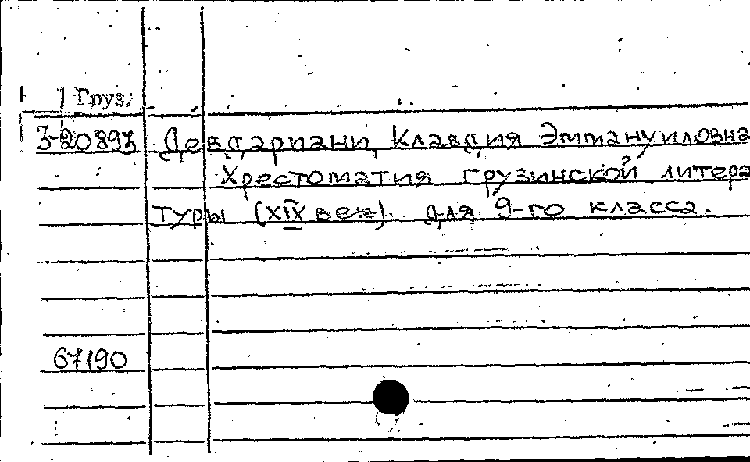 Груз.
З-20893 Девдариани, Клавдия Эммануиловна
Хрестоматия грузинской литера
туры (XIX век) для 9-го класса.
67190